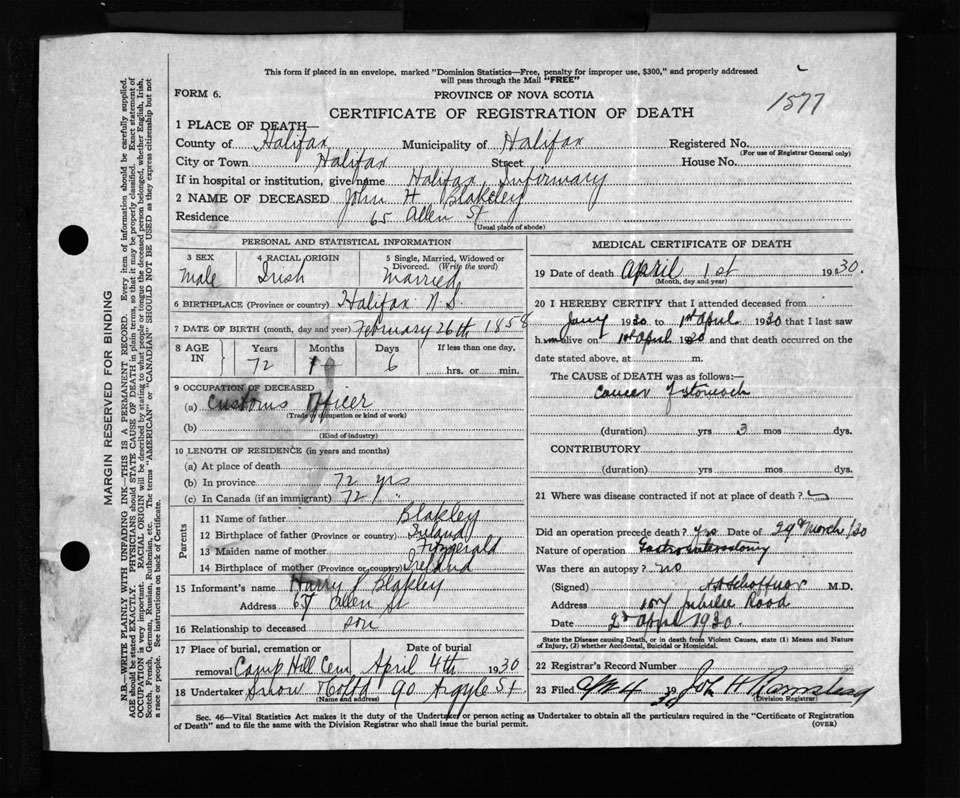 This form if placed in an envelope, marked "Dominion Statistics—Free, penalty for improper use, $300," and properly addressed
will pass through the Mail "FREE"
1577
FORM 6.
PROVINCE OF NOVA SCOTIA
CERTIFICATE OF REGISTRATION OF DEATH
1 PLACE OF DEATH—
County of Halifax Municipality of Halifax Registered No.
(For use of Registrar General only)
City or Town Halifax Street House No.
If in hospital or institution, give name Halifax Infirmary
2 NAME OF DECEASED John H Blakeley
Residence 65 Allen St
(Usual place of abode)
PERSONAL AND STATISTICAL INFORMATION
3 SEX 4 RACIAL ORIGIN 5 Single, Married, Widowed or
Divorced. (Write the word)
Male Irish Married
6 BIRTHPLACE (Province or country) Halifax N.S.
7 DATE OF BIRTH (month, day and year) February 26th 1858
8 AGE IN Years Months Days If less than one day,
72 6 hrs. or min.
9 OCCUPATION OF DECEASED
(a) Customs Officer
(Trade occupation or kind of work)
(b)
(Kind of industry)
10 LENGTH OF RESIDENCE (in years and months)
(a) At place of death
(b) In province 72 yrs
(c) In Canada (if an immigrant) 72 "
Parents
11 Name of father Blakley
12 Birthplace of father (Province or country) Ireland
13 Maiden name of mother Fitzgerald
14 Birthplace of mother (Province or country) Ireland
15 Informant's name Harry Blakley
Address Allen St
16 Relationship to deceased son
17 Place of burial, cremation or Date of burial
removal Camp Hill Cem April 4th 1930
18 Undertaker Snow 90 Argyle St
(Name and address)
MEDICAL CERTIFICATE OF DEATH
19 Date of death April 1st 1930.
(Month, day and year)
20 I HEREBY CERTIFY that I attended deceased from
Jany 1930 to 1st April 1930 that I last saw
him alive on 1st April 1930 and that death occurred on the
date stated above, at m.
The CAUSE OF DEATH was as follows:—
Cancer of stomach
(duration) yrs 3 mos dys.
CONTRIBUTORY
(duration) yrs mos dys.
21 Where was disease contracted if not at place of death?
Did an operation precede death? yes Date of 29th March/30
Nature of operation Gastro enterostomy
Was there an autopsy? no
(Signed) M.D.
Address 157 Jubilee Road
Date 2d April 1930
State the Disease causing Death, or in death from Violent Causes, state (1) Means and Nature
of Injury, (2) whether Accidental, Suicidal or Homicidal.
22 Registrar's Record Number
23 Filed 4 1930
(Division Registrar)
Sec. 46—Vital Statistics Act makes it the duty of the Undertaker or person acting as Undertaker to obtain all the particulars required in the "Certificate of Registration
of Death" and to file the same with the Division Registrar who shall issue the burial permit.
(OVER)
MARGIN RESERVED FOR BINDING
N.B.—WRITE PLAINLY WITH UNFADING INK—THIS IS A PERMANENT RECORD. Every item of information should be carefully supplied.
AGE should be stated EXACTLY. PHYSICIANS should STATE CAUSE OF DEATH in plain terms, so that it may be properly classified. Exact statement of
OCCUPATION is very important. RACIAL ORIGIN will be described by stating to what people or tongue the deceased person belonged, whether English, Irish,
Scotch, French, German, Russian, Ruthenian, etc. The terms "AMERICAN" or "CANADIAN" SHOULD NOT BE USED as they express citizenship but not
a race or people. See instructions on back of Certificate.